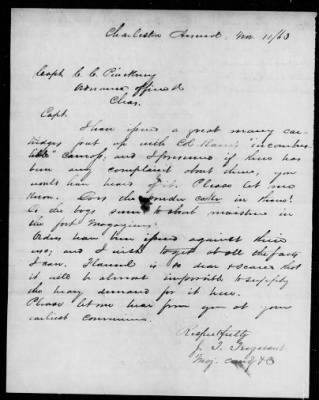 Charleston Arsenal, Nov. 11/63
Capt. C. C. Pinckney
Ordnance Officer
Chas.
Capt.
I have issued a great many car-
tridges put up with Col. "incombus-
tible" and I presume if there has
been any complaint about them, you
would have heard of it. Please let me
know. Does the powder in them?
As the bags seem to moisture in
the fort Magazines.
Orders have been issued against their
use; and I wish to get at all the facts
I can. Flannel is so dear & scarce that
it will be almost impossible to supply
the heavy demand for it here.
Please let me hear from you at your
earliest convenience.
Respectfully
J. T. Trezevant
Maj. Comdg